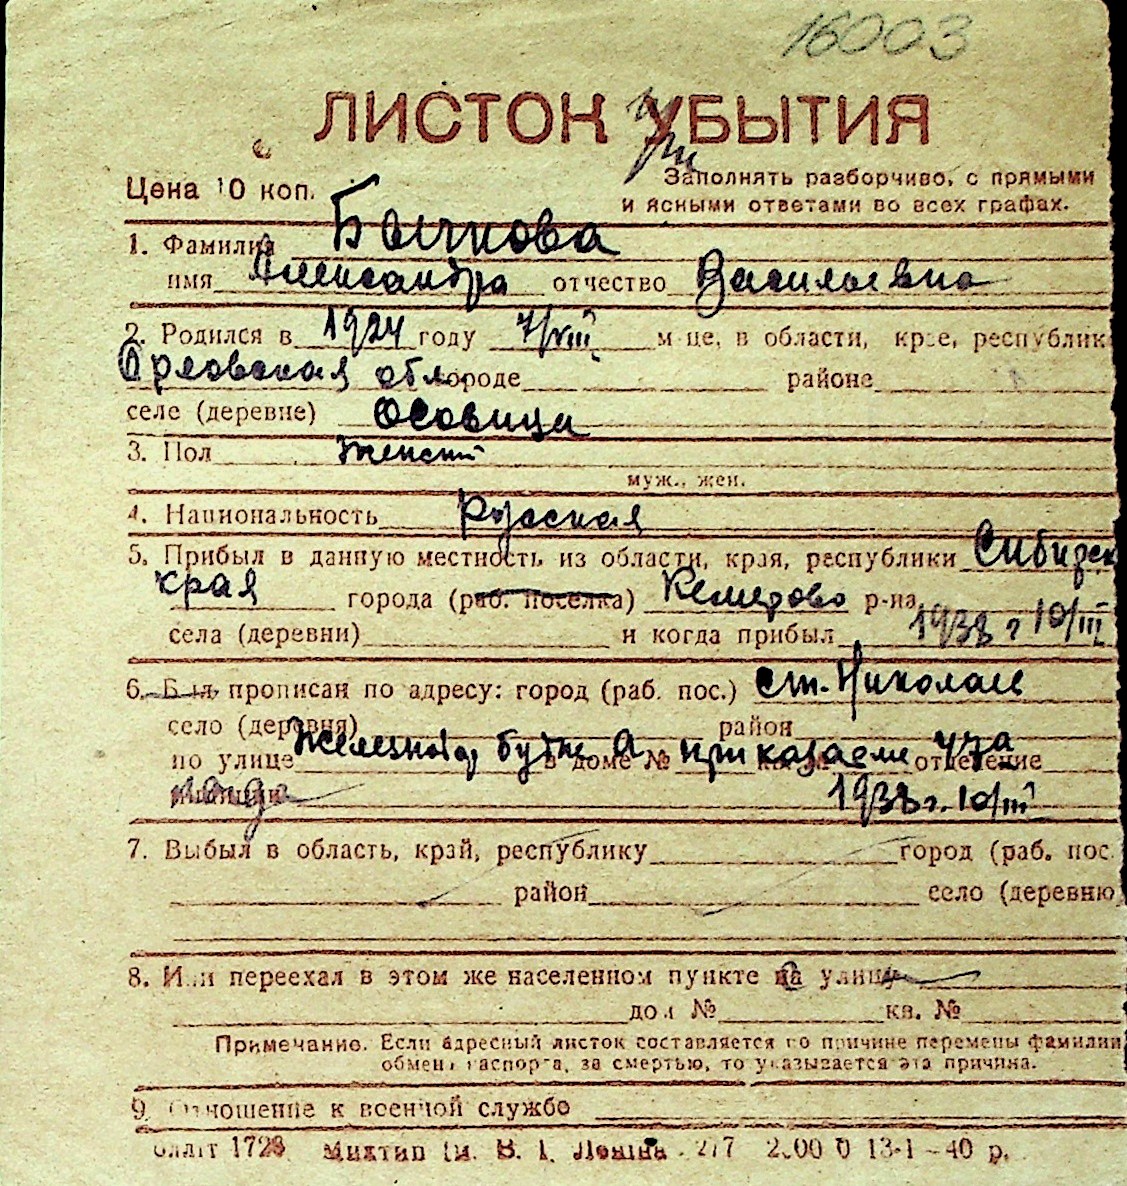 16003
ЛИСТОК УБЫТИЯ
Цена 10 коп.
Заполнять разборчиво, с прямыми
и ясными ответами во всех графах.
1. Фамилия Бычкова
имя Александра отчество Васильевна
2. Родился в 1924 году 7/VIII м-це, в области, крае, республик
Орловская обл. городе районе
селе (деревне) Осовица
3. Пол Женский
муж., жен.
4. Национальность Русская
5. Прибыл в данную местность из области, края, республики Сибирск
края города (раб. поселка) Кемерово р-на
села (деревни) и когда прибыл 1938 г 10/III
6. Был прописан по адресу: город (раб. пос.) ст. Николаев
село (деревня) район
по улице в доме № кв. № отделение
милиции 1938 г. 10/III
7. Выбыл в область, край, республику город (раб. пос.
район село (деревню
8. Или переехал в этом же населенном пункте на улицу
дом № кв. №
Примечание. Если адресный листок составляется по причине перемены фамилии
обмена паспорта, за смертью, то указывается эта причина.
9. Отношение к военной службе
1728 им. В. Ленина 13-1-40 р.